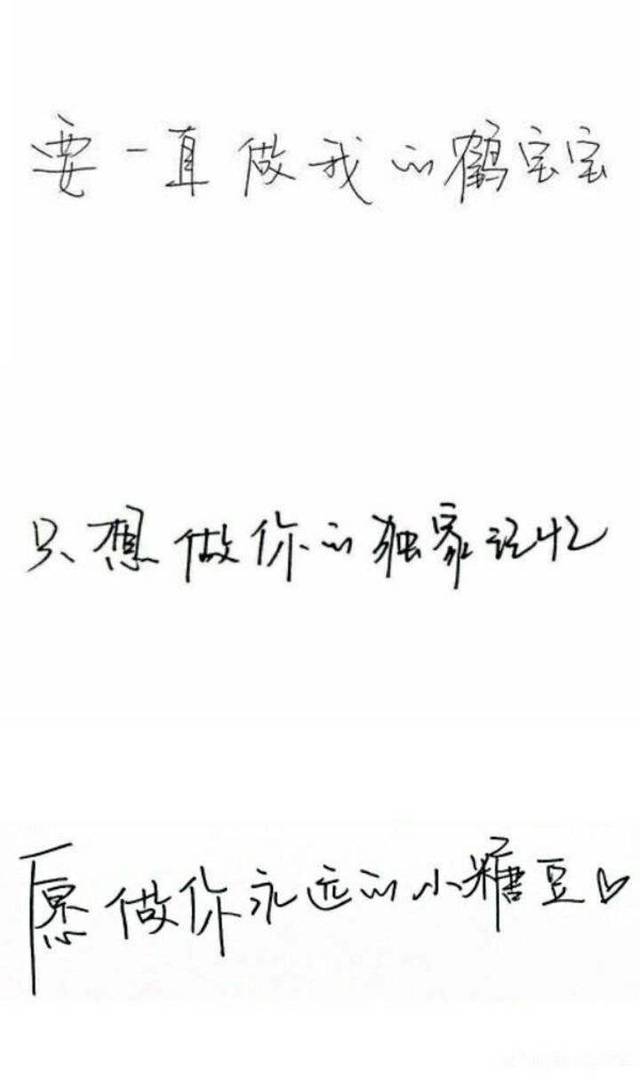 要一直做我的鹤宝宝
只想做你的独家记忆
愿做你永远的小糖豆♡